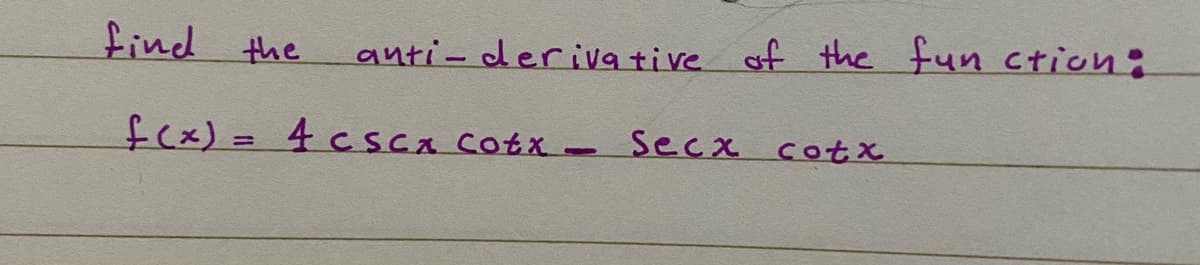 find the anti-derivative of the function:
f(x) = 4 cscx cotx - secx cotx